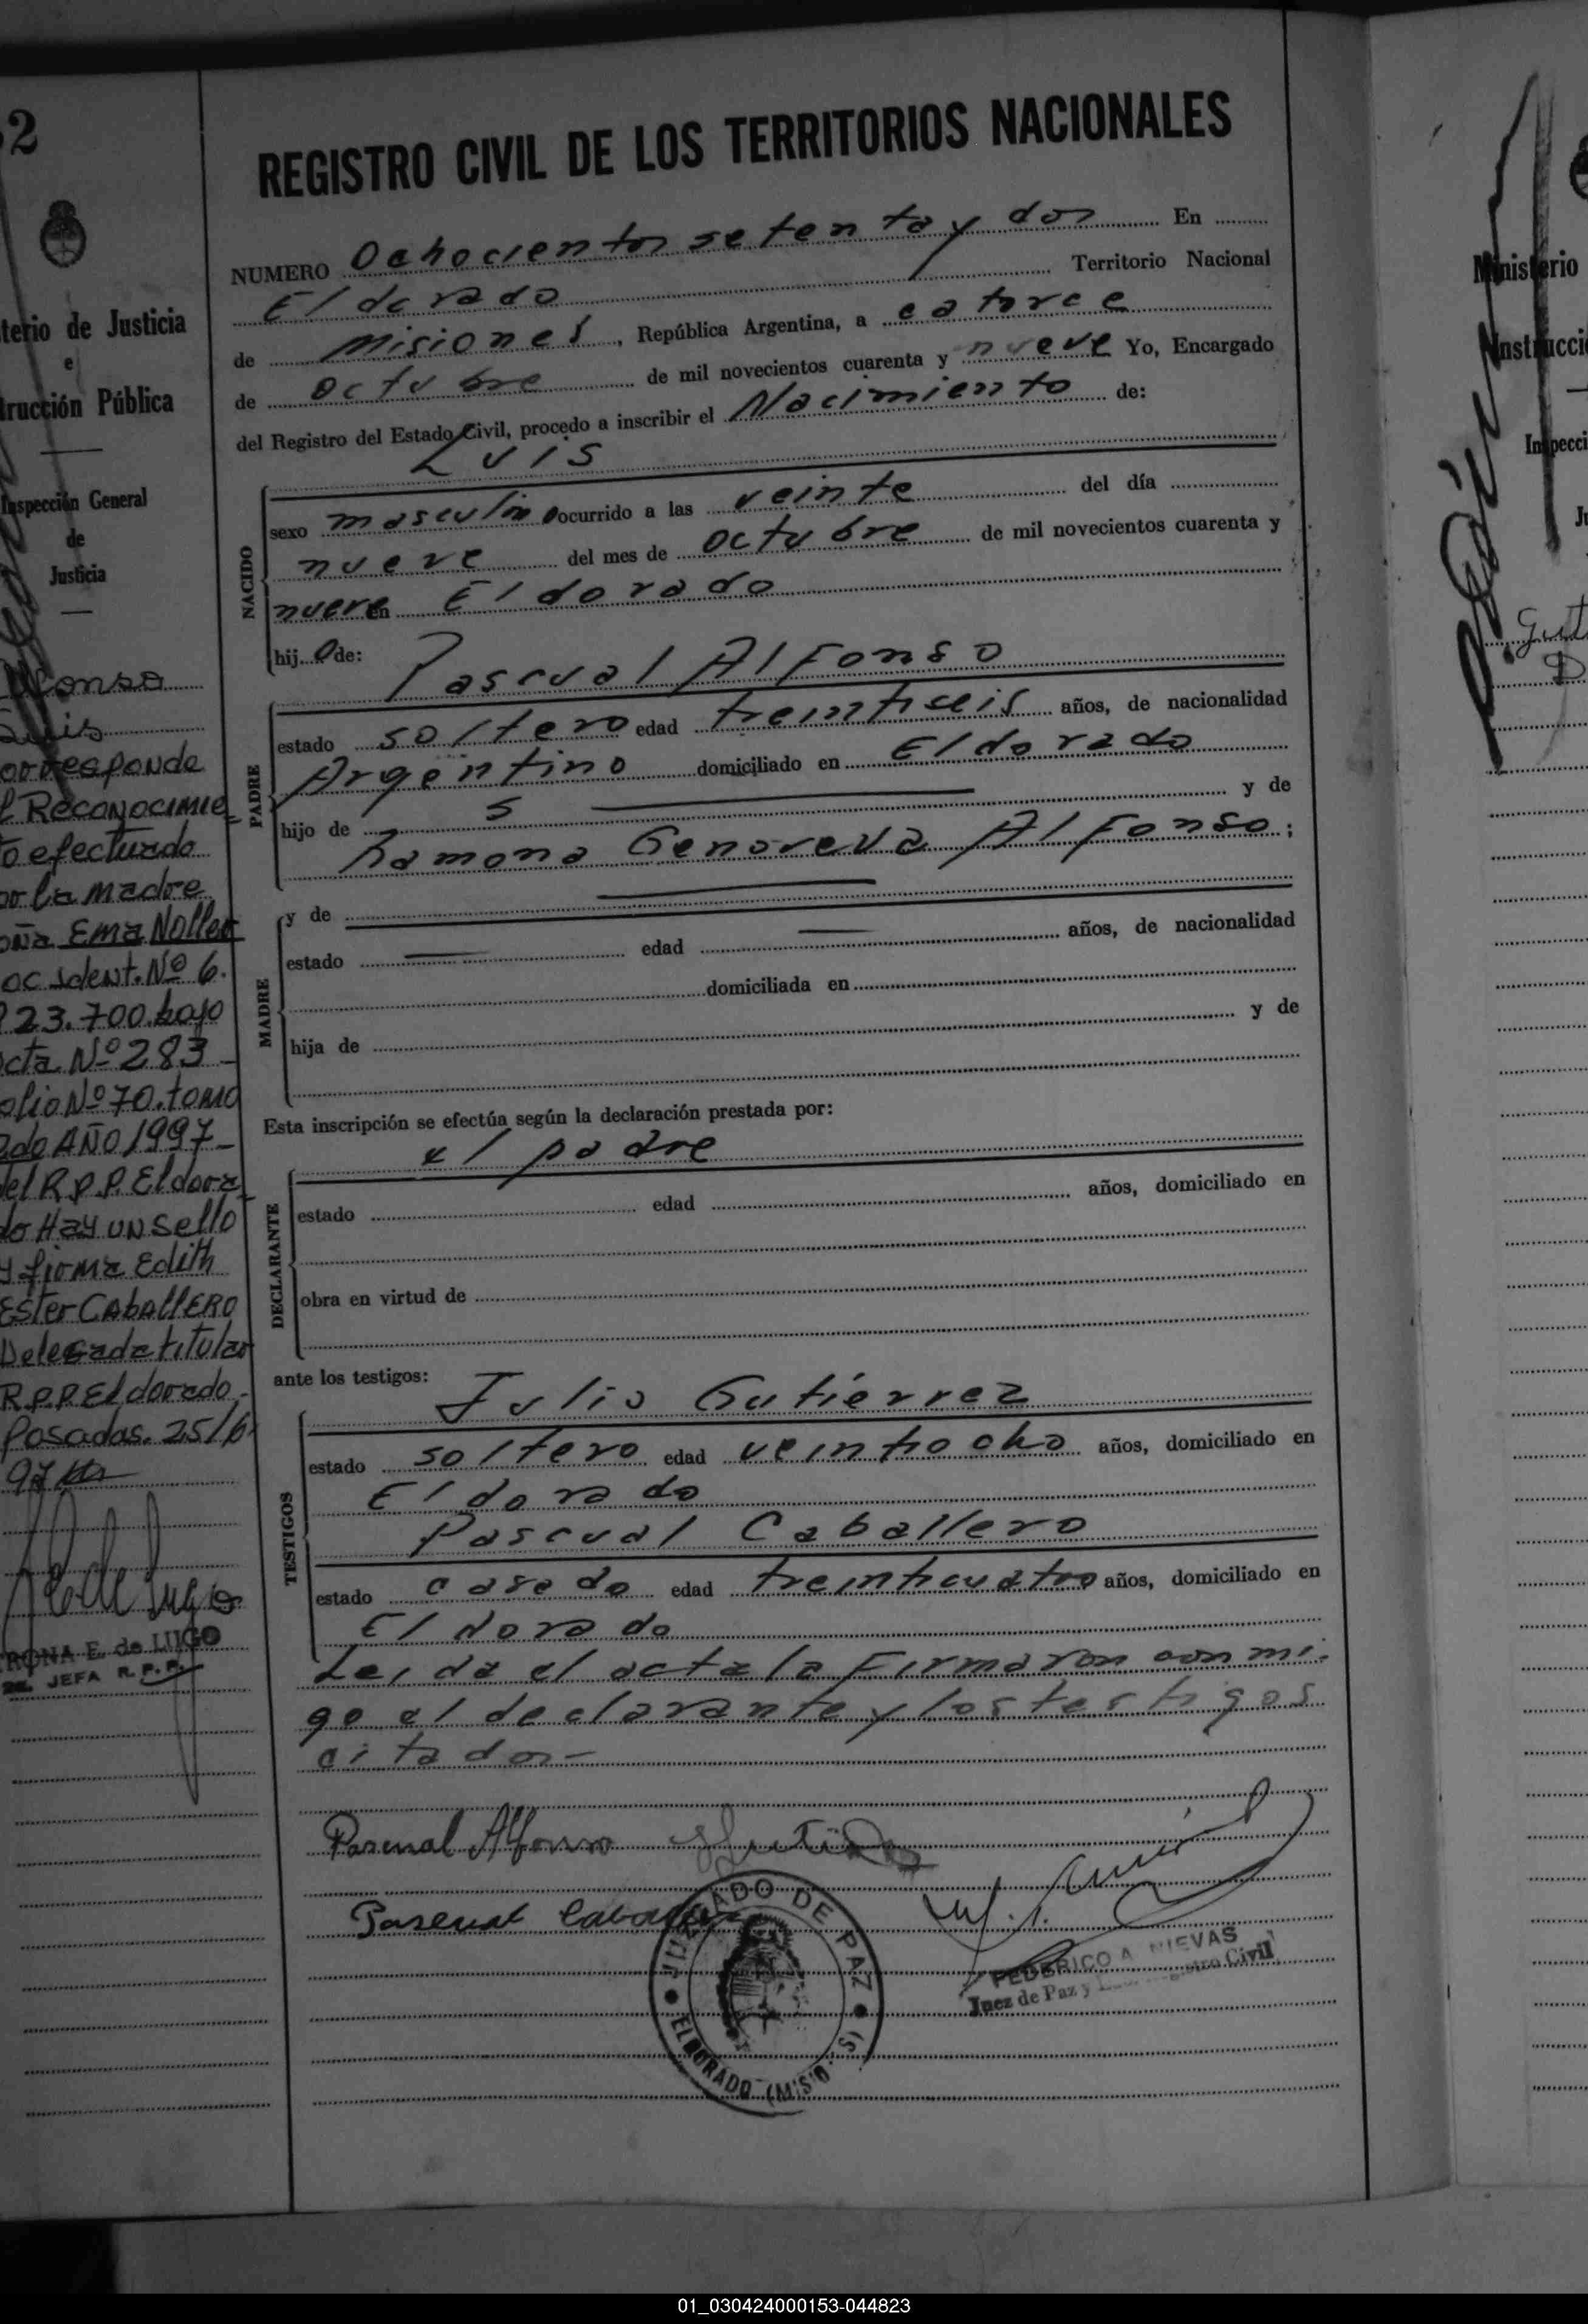 REGISTRO CIVIL DE LOS TERRITORIOS NACIONALES
NUMERO Ochocientos setenta y dos En
Eldorado Territorio Nacional
de Misiones, República Argentina, a catorce
de octubre de mil novecientos cuarenta y nueve Yo, Encargado
del Registro del Estado Civil, procedo a inscribir el Nacimiento de:
Luis
NACIDO
sexo masculino ocurrido a las veinte del día
nueve del mes de octubre de mil novecientos cuarenta y
nueve en Eldorado
hijo de:
Pascual Alfonso
PADRE
estado soltero edad treintiseis años, de nacionalidad
Argentino domiciliado en Eldorado
hijo de y de
Ramona Genoveva Alfonso;
y de
MADRE
estado edad años, de nacionalidad
domiciliada en
hija de y de
Esta inscripción se efectúa según la declaración prestada por:
el padre
DECLARANTE
estado edad años, domiciliado en
obra en virtud de
ante los testigos:
Julio Gutierrez
TESTIGOS
estado soltero edad veintiocho años, domiciliado en
Eldorado
Pascual Caballero
estado casado edad treinticuatro años, domiciliado en
Eldorado
Leida el acta la Firmaron conmi-
go el declarante y los testigos
citados-
Pascual Alfonso
Pascual
JUZGADO DE PAZ
ELDORADO
FEDERICO A. NIEVAS
Juez de Paz y Registro Civil
2
terio de Justicia
e
trucción Pública
Inspección General
de
Justicia
lfonso
Luis
orresponde
l Reconocimie
o efectuado
or la madre
oña Ema Noller
oc ident. Nº 6.
23.700. bajo
cta Nº 283
olio Nº 70. tomo
2do AÑO 1997
el R.P.P. Eldora
do Hay un sello
y firma Edith
Ester CABALLERO
Delegada titular
R.P.P. Eldorado.
Posadas. 25/6
97
RONA E. de LUGO
JEFA R. P. P.
Ministerio
Instrucci
Inspecci
Ju
01_030424000153-044823